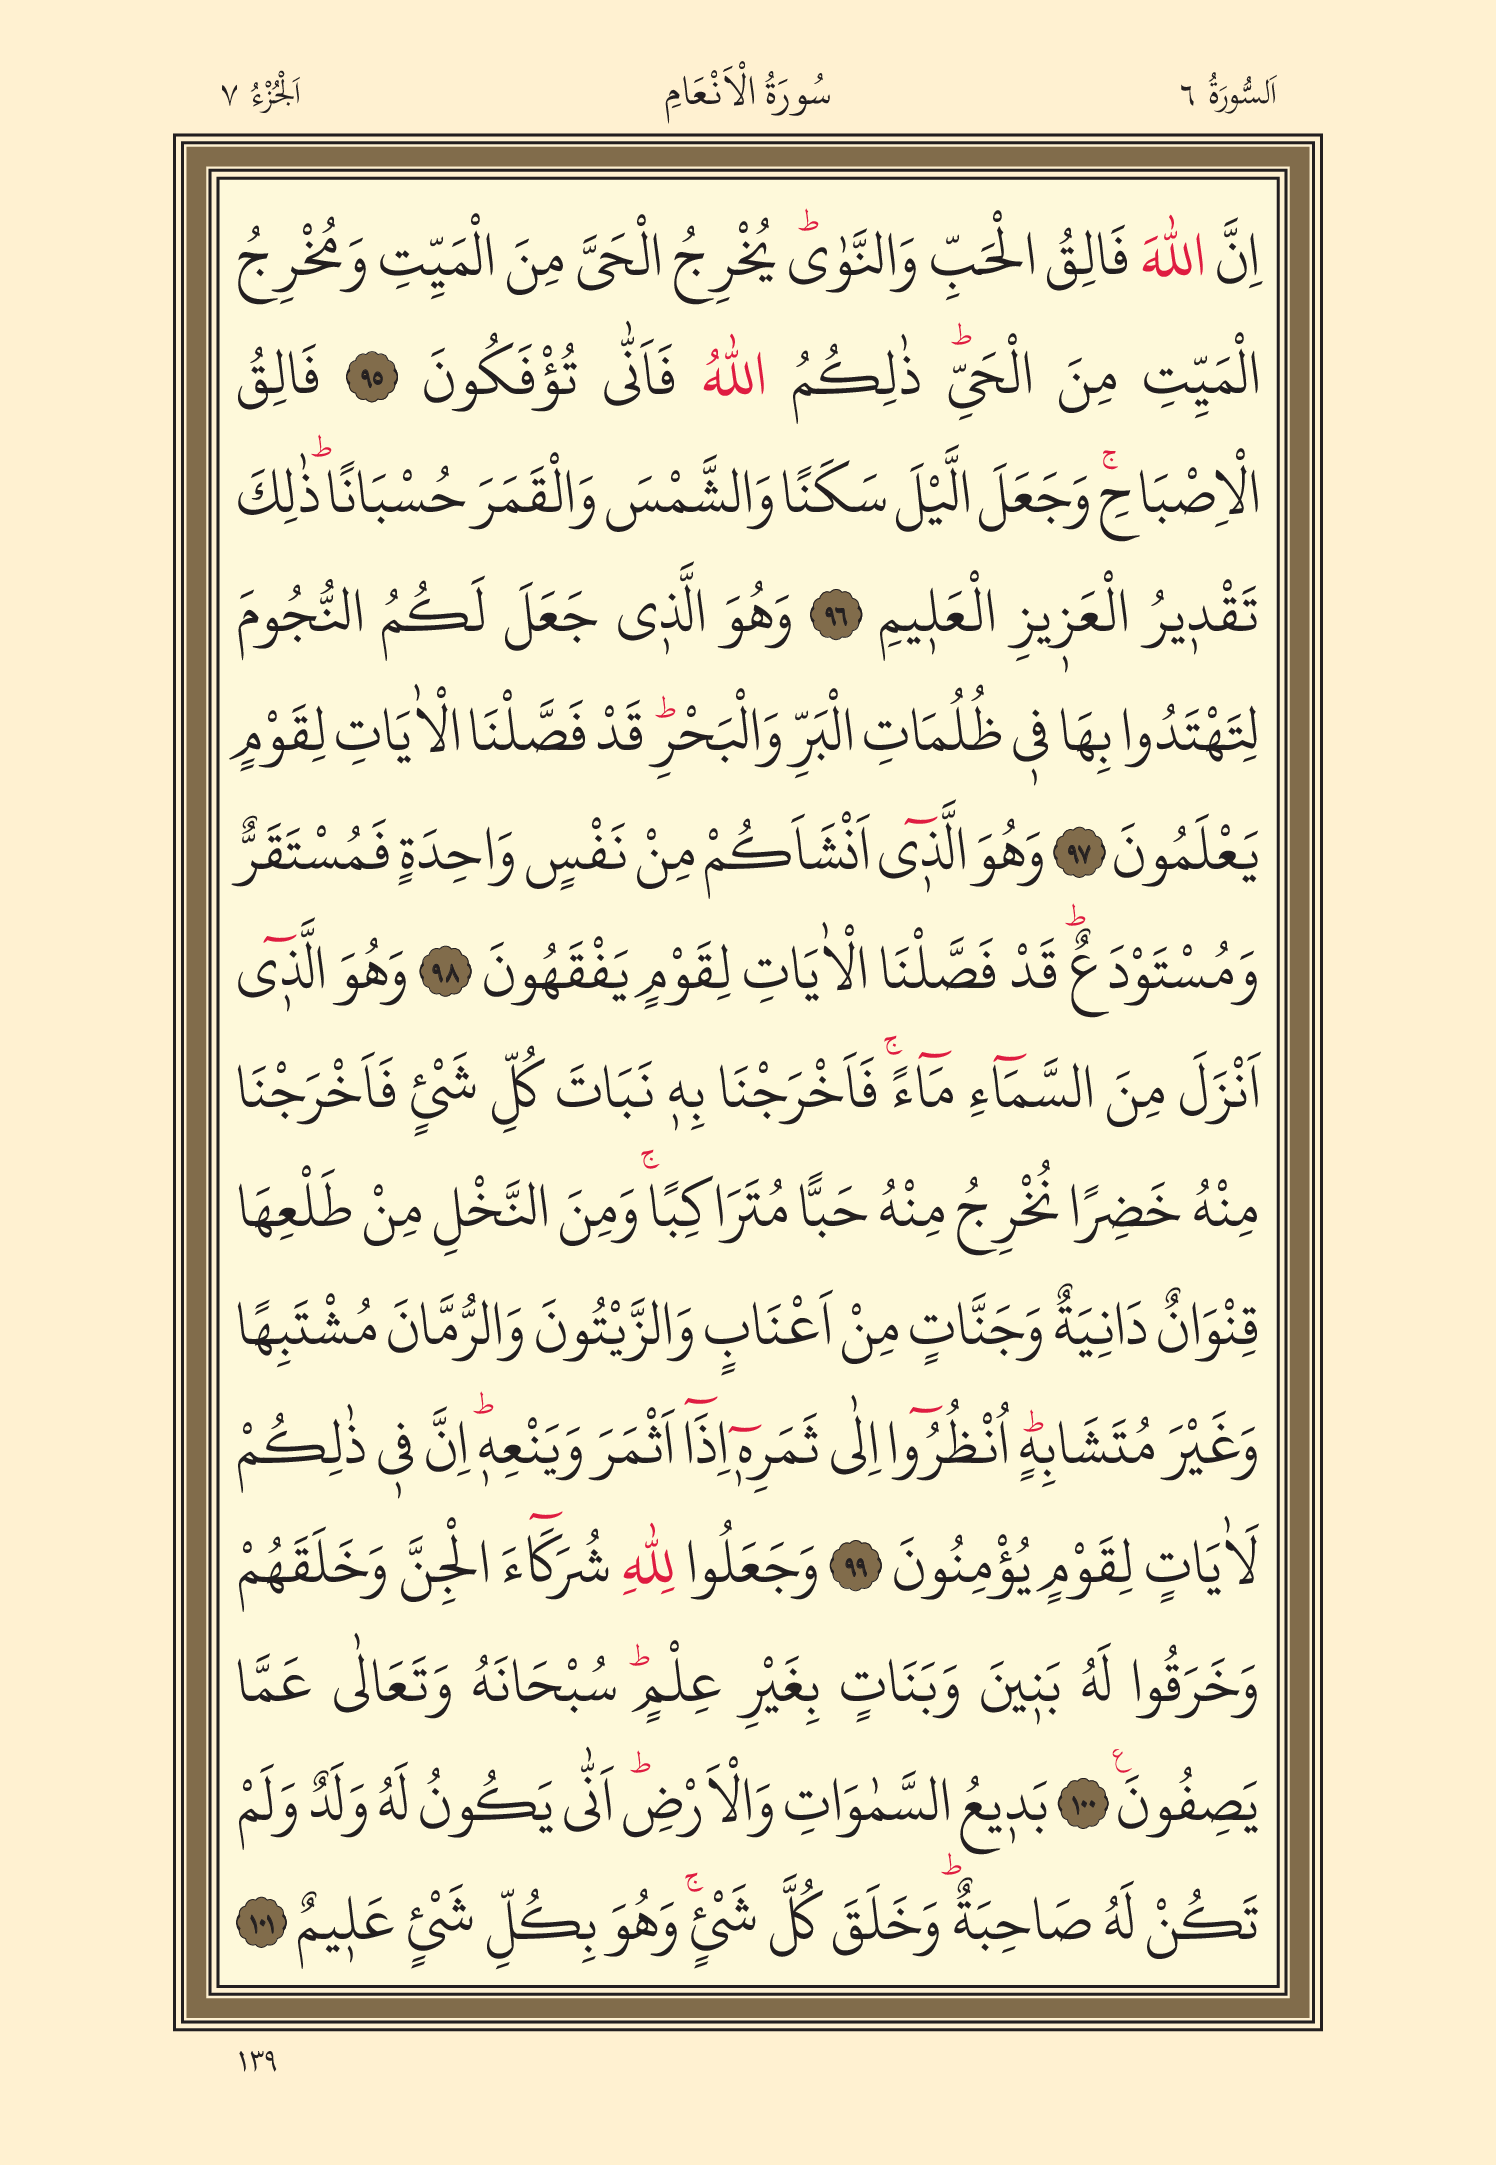 اَلسُّورَةُ ٦ سُورَةُ الْاَنْعَامِ اَلْجُزْءُ ٧
اِنَّ اللّٰهَ فَالِقُ الْحَبِّ وَالنَّوٰىۜ يُخْرِجُ الْحَىَّ مِنَ الْمَيِّتِ وَمُخْرِجُ
الْمَيِّتِ مِنَ الْحَيِّۜ ذٰلِكُمُ اللّٰهُ فَاَنّٰى تُؤْفَكُونَ ﴿٩٥﴾ فَالِقُ
الْاِصْبَاحِۚ وَجَعَلَ الَّيْلَ سَكَنًا وَالشَّمْسَ وَالْقَمَرَ حُسْبَانًاۜ ذٰلِكَ
تَقْد۪يرُ الْعَز۪يزِ الْعَل۪يمِ ﴿٩٦﴾ وَهُوَ الَّذ۪ى جَعَلَ لَكُمُ النُّجُومَ
لِتَهْتَدُوا بِهَا ف۪ى ظُلُمَاتِ الْبَرِّ وَالْبَحْرِۜ قَدْ فَصَّلْنَا الْاٰيَاتِ لِقَوْمٍ
يَعْلَمُونَ ﴿٩٧﴾ وَهُوَ الَّذ۪ٓى اَنْشَاَكُمْ مِنْ نَفْسٍ وَاحِدَةٍ فَمُسْتَقَرٌّ
وَمُسْتَوْدَعٌۜ قَدْ فَصَّلْنَا الْاٰيَاتِ لِقَوْمٍ يَفْقَهُونَ ﴿٩٨﴾ وَهُوَ الَّذ۪ٓى
اَنْزَلَ مِنَ السَّمَٓاءِ مَٓاءًۚ فَاَخْرَجْنَا بِه۪ نَبَاتَ كُلِّ شَىْءٍ فَاَخْرَجْنَا
مِنْهُ خَضِرًا نُخْرِجُ مِنْهُ حَبًّا مُتَرَاكِبًاۚ وَمِنَ النَّخْلِ مِنْ طَلْعِهَا
قِنْوَانٌ دَانِيَةٌ وَجَنَّاتٍ مِنْ اَعْنَابٍ وَالزَّيْتُونَ وَالرُّمَّانَ مُشْتَبِهًا
وَغَيْرَ مُتَشَابِهٍۜ اُنْظُرُٓوا اِلٰى ثَمَرِه۪ٓ اِذَٓا اَثْمَرَ وَيَنْعِه۪ۜ اِنَّ ف۪ى ذٰلِكُمْ
لَاٰيَاتٍ لِقَوْمٍ يُؤْمِنُونَ ﴿٩٩﴾ وَجَعَلُوا لِلّٰهِ شُرَكَٓاءَ الْجِنَّ وَخَلَقَهُمْ
وَخَرَقُوا لَهُ بَن۪ينَ وَبَنَاتٍ بِغَيْرِ عِلْمٍۜ سُبْحَانَهُ وَتَعَالٰى عَمَّا
يَصِفُونَ ع ﴿١٠٠﴾ بَد۪يعُ السَّمٰوَاتِ وَالْاَرْضِۜ اَنّٰى يَكُونُ لَهُ وَلَدٌ وَلَمْ
تَكُنْ لَهُ صَاحِبَةٌۜ وَخَلَقَ كُلَّ شَىْءٍۚ وَهُوَ بِكُلِّ شَىْءٍ عَل۪يمٌ ﴿١٠١﴾
١٣٩